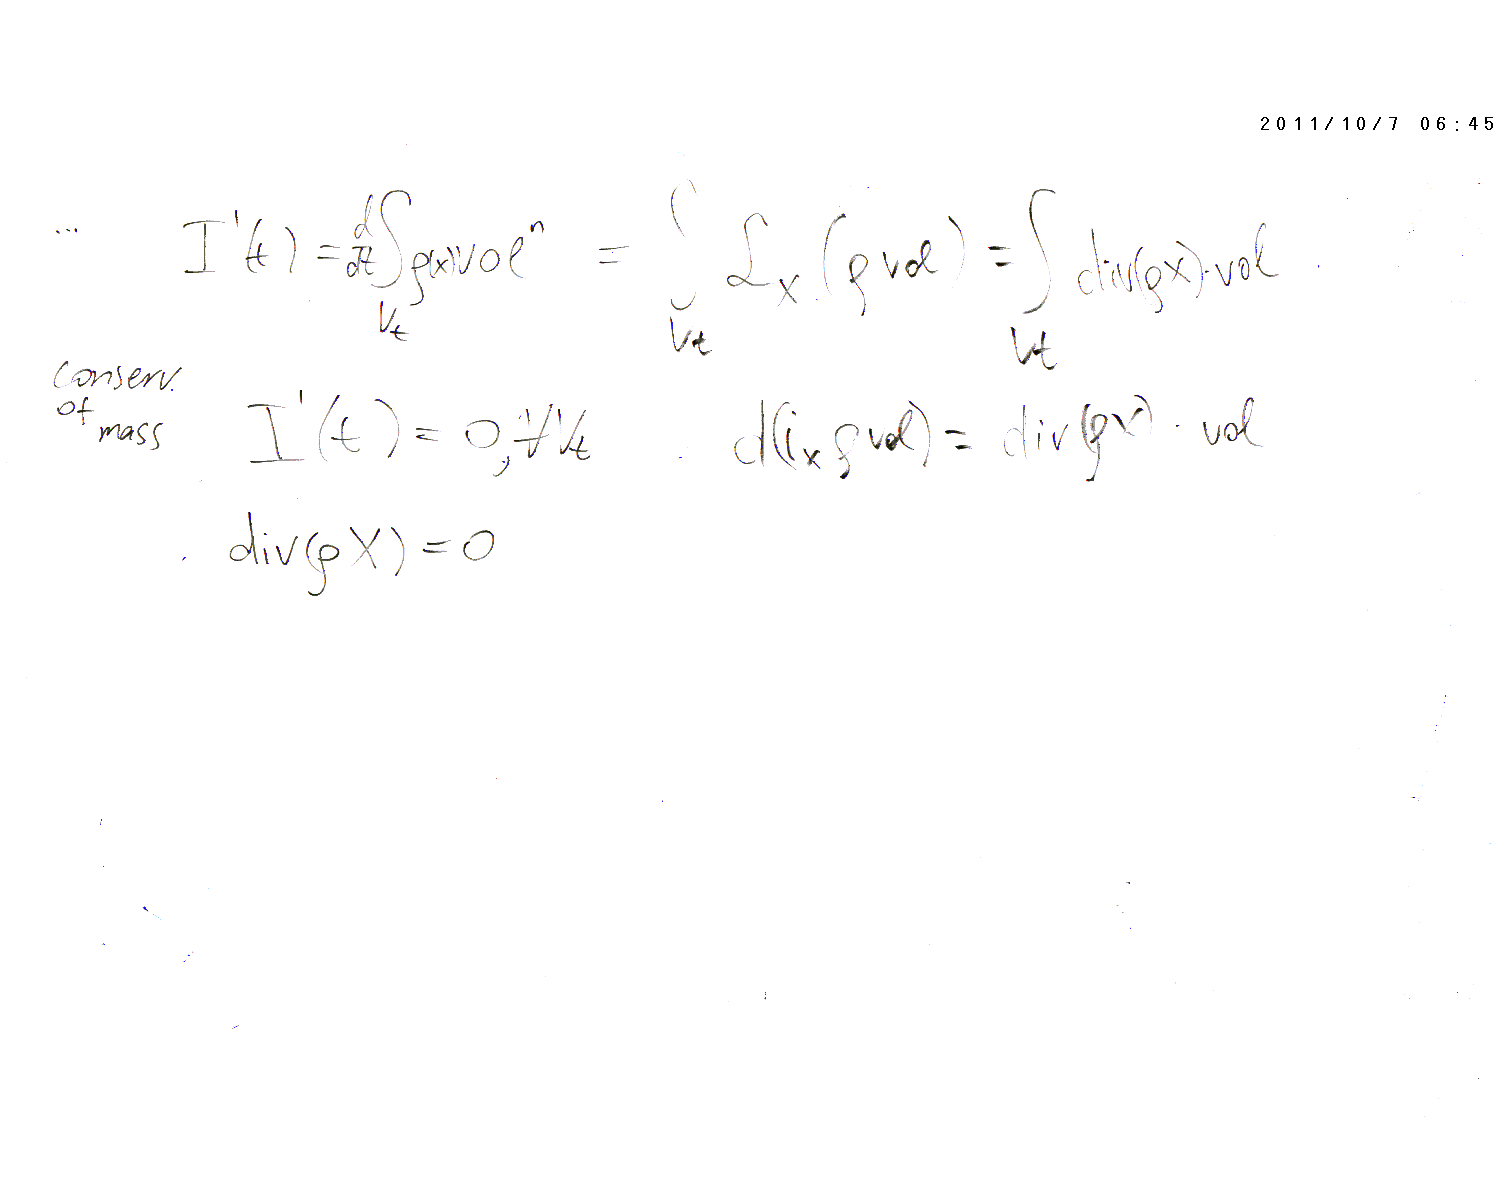 2011/10/7 06:45
... I'(t) = d/dt ∫_{V_t} ρ(x) vol^n = ∫_{V_t} ℒ_X (ρ vol) = ∫_{V_t} div(ρX)·vol
Conserv. of mass
I'(t) = 0, ∀V_t d(i_X ρ vol) = div(ρX) · vol
div(ρX) = 0